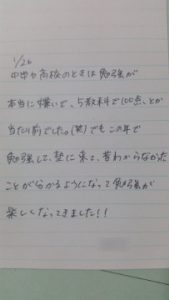 1/26
中学や高校のときは勉強が
本当に嫌いで、5教科で100点、とか
当たり前でした。(笑)でもこの年で
勉強して、塾に来て、昔わからなかった
ことが分かるようになって勉強が
楽しくなってきました!!